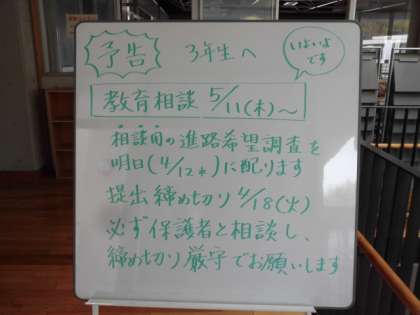 予告
3年生へ
いよいよ
です
教育相談 5/11(木)～
相談用の進路希望調査を
明日(4/12水)に配ります
提出締め切り 4/18(火)
必ず保護者と相談し、
締め切り厳守でお願いします